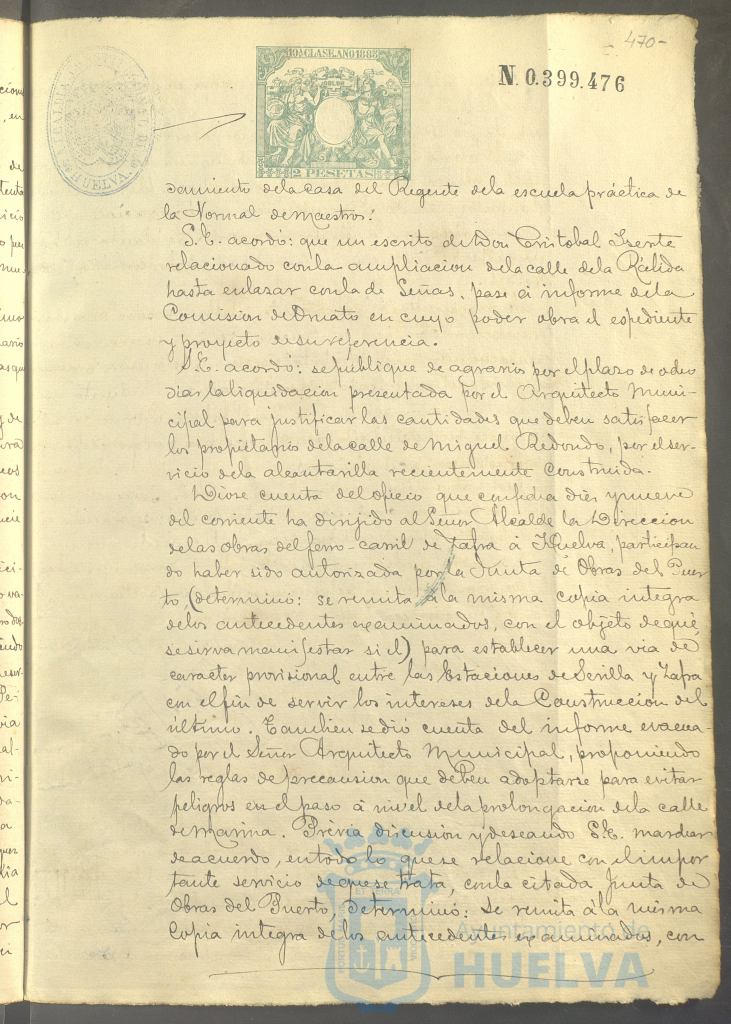 470-
10ª CLASE. AÑO 1885
N. 0.399.476
2 PESETAS
HUELVA.
damiento dela casa del Regente dela escuela práctica de
la Normal de Maestros.
S.E. acordó: que un escrito de Don Cristobal Ysente
relacionado con la ampliacion dela calle dela Rábida
hasta enlasar con la de Señas, pase á informe dela
Comision de Ornato en cuyo poder obra el espediente
y proyecto de su referencia.
S.E. acordó: se publique de agravios por el plazo de ocho
dias la liquidacion presentada por el Arquitecto Muni-
cipal para justificar las cantidades que deben satisfacer
los propietarios dela calle de Miguel Redondo, por el ser-
vicio dela alcantarilla recientemente Construida.
Diose cuenta del oficio que con fecha dies y nueve
del corriente ha dirijido al Señor Alcalde la Direccion
de las obras del ferro-carril de Zafra á Huelva, participan
do haber sido autorizada por la Junta de Obras del Puer
to, (determinó: se remita á la misma copia integra
delos antecedentes examinados, con el objeto de que
se sirva manifestar si el) para establecer una via de
caracter provisional entre las Estaciones de Sevilla y Zafra
con el fin de servir los intereses dela Construccion del
último. Tambien se dió cuenta del informe evacua-
do por el Señor Arquitecto Municipal, proponiendo
las reglas de precausion que deben adoptarse para evitar
peligros en el paso á nivel dela prolongacion dela calle
de Marina. Prévia discusion y deseando S.E. marchar
de acuerdo, en todo lo que se relacione con el impor
tante servicio de que se trata, con la citada Junta de
Obras del Puerto, determinó: Se remita á la misma
Copia integra de los antecedentes examinados, con
Ayuntamiento de
HUELVA